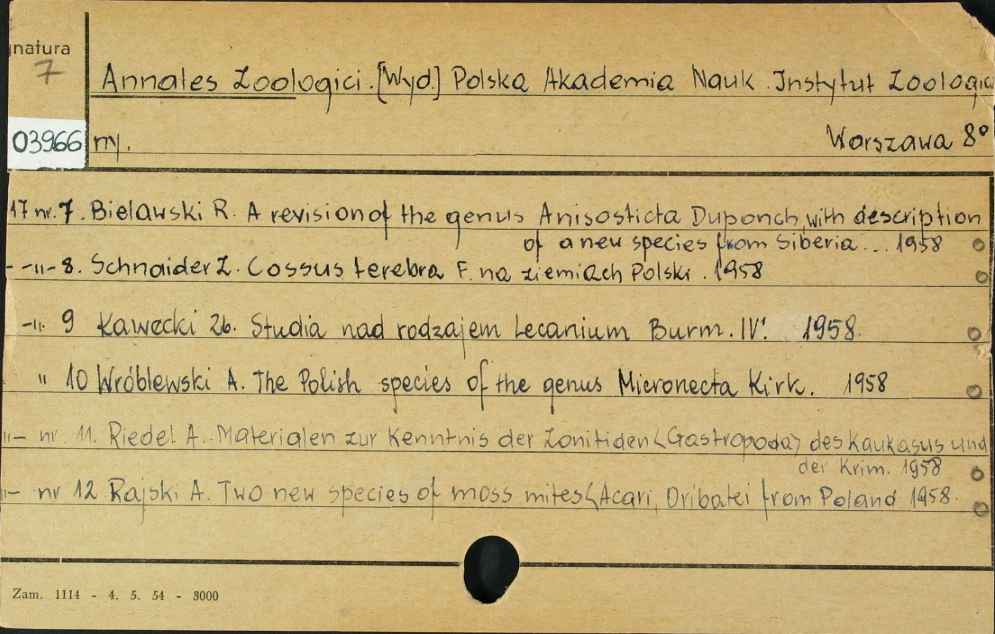 natura
7
Annales Zoologici. [Wyd.] Polska Akademia Nauk. Instytut Zoologicz
03966 ny. Warszawa 8°
17 nr. 7. Bielawski R. A revision of the genus Anisosticta Duponch, with description
of a new species from Siberia... 1958
- -"- 8. Schnaider Z. Cossus terebra F. na ziemiach Polski. 1958
-"- 9 Kawecki Zb. Studia nad rodzajem Lecanium Burm. IV. 1958.
" 10 Wróblewski A. The Polish species of the genus Micronecta Kirk. 1958
"- nr. 11. Riedel A. Materialen zur Kenntnis der Zonitiden <Gastropoda> des Kaukasus und
der Krim. 1958
"- nr 12 Rajski A. Two new species of moss mites <Acari, Oribatei from Poland 1958.
Zam. 1114 - 4. 5. 54 - 3000